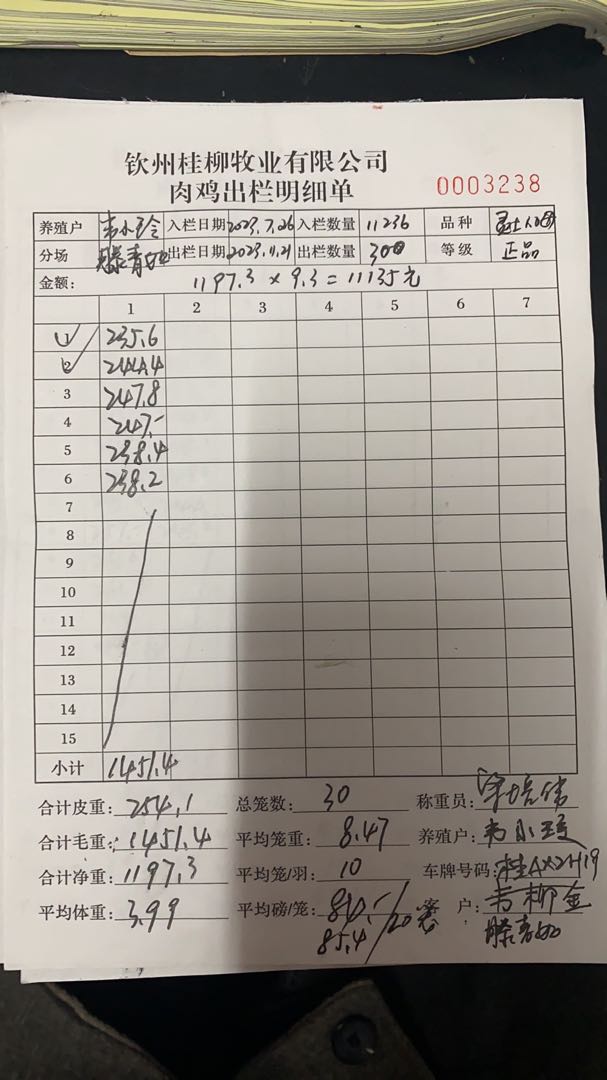 钦州桂柳牧业有限公司
肉鸡出栏明细单
0003238
养殖户 韦小玲 入栏日期 2023.7.26 入栏数量 11236 品种
分场 滕青 出栏日期 2023.11.21 出栏数量 300 等级 正品
金额: 1197.3 × 9.3 = 11135元
1 2 3 4 5 6 7
1 235.6
2 244.4
3 247.8
4 247.-
5 238.4
6 238.2
7
8
9
10
11
12
13
14
15
小计 1451.4
合计皮重: 254.1 总笼数: 30 称重员:
合计毛重: 1451.4 平均笼重: 8.47 养殖户: 韦小玲
合计净重: 1197.3 平均笼/羽: 10 车牌号码:
平均体重: 3.99 平均磅/笼: 客户: 韦柳金
85.4/20
滕青